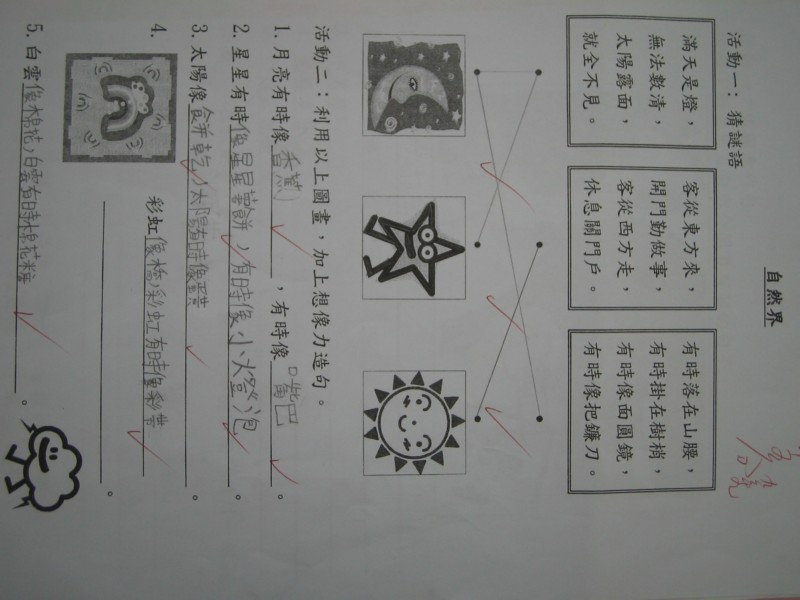 自然界
活動一：猜謎語
滿天是燈，
無法數清，
太陽露面，
就全不見。
客從東方來，
開門勤做事，
客從西方走，
休息關門戶。
有時落在山腰，
有時掛在樹梢，
有時像面圓鏡，
有時像把鐮刀。
活動二：利用以上圖畫，加上想像力造句。
1. 月亮有時像香蕉，有時像嘴巴。
2. 星星有時像星星薯餅，有時像小燈泡。
3. 太陽像餅乾，太陽有時像蛋黃
4. 彩虹像橋，彩虹有時像彩帶。
5. 白雲像棉花，白雲有時棉花糖。